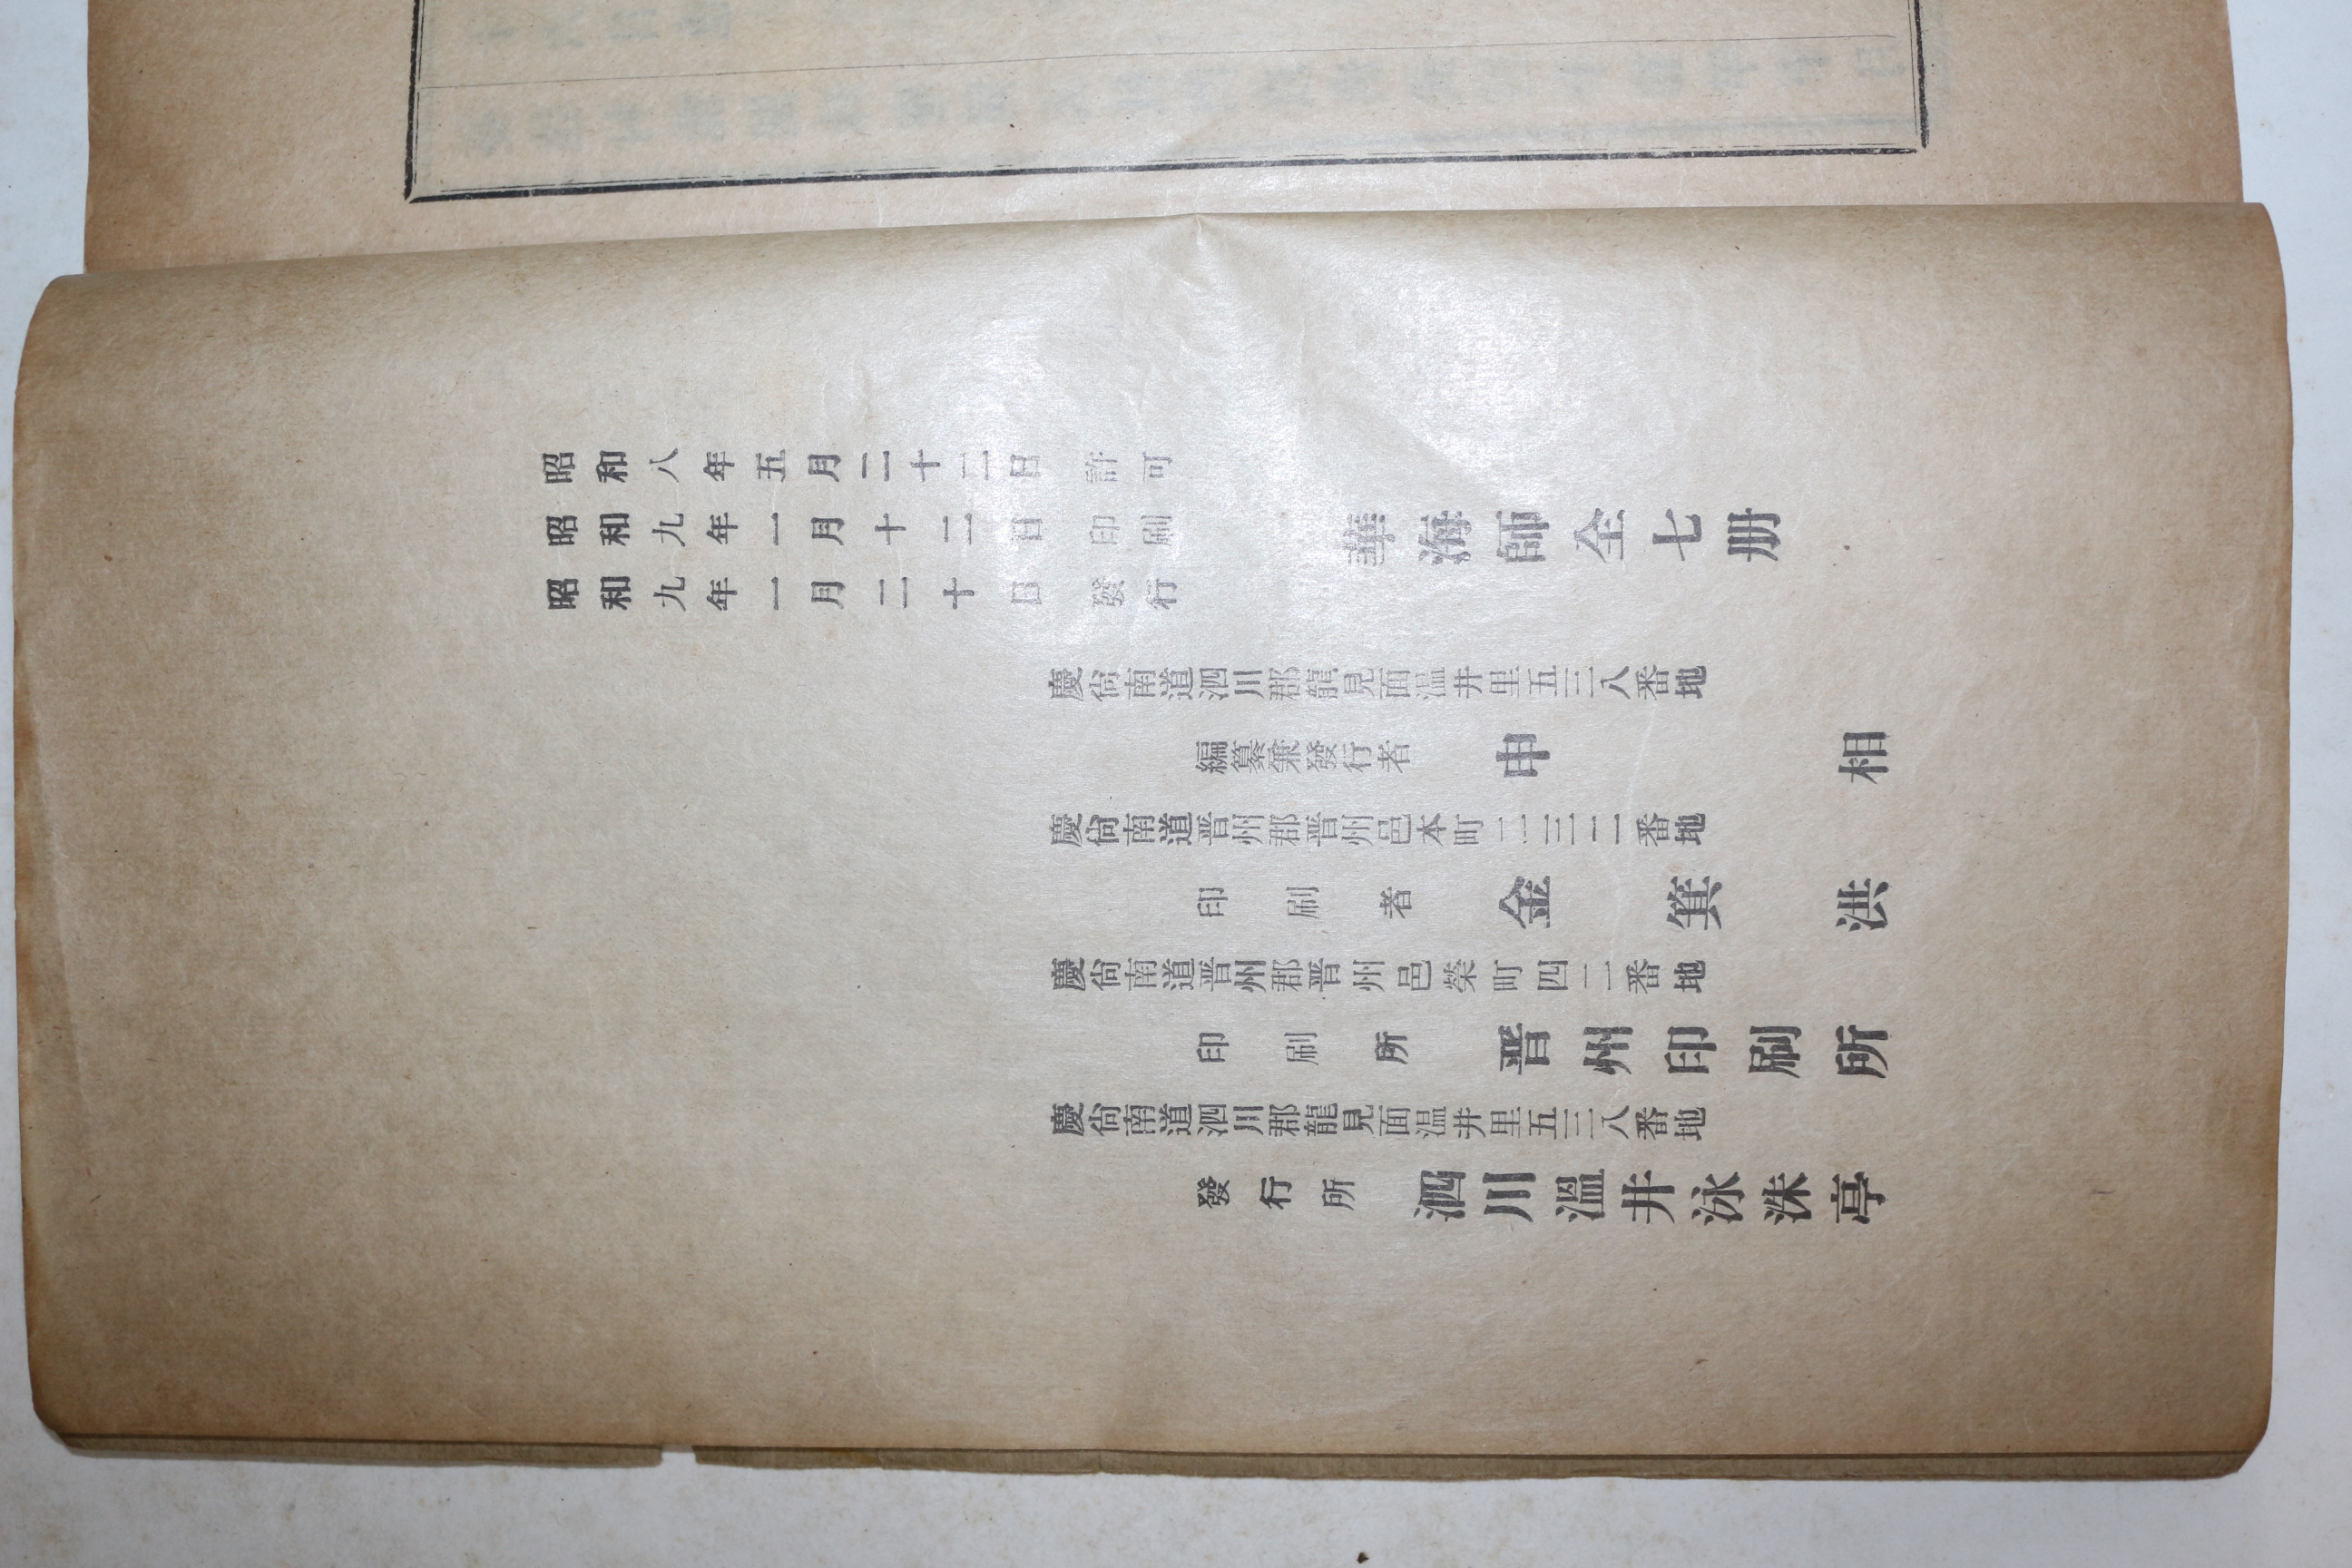 昭和八年五月二十二日許可
昭和九年一月十二日印刷
昭和九年一月二十日發行
華海師全七册
慶尙南道泗川郡龍見面溫井里五三八番地
編纂兼發行者 申相
慶尙南道晋州郡晋州邑本町二三二番地
印刷者 金箕洪
慶尙南道晋州郡晋州邑榮町四二番地
印刷所 晋州印刷所
慶尙南道泗川郡龍見面溫井里五三八番地
發行所 泗川溫井泳洙亭